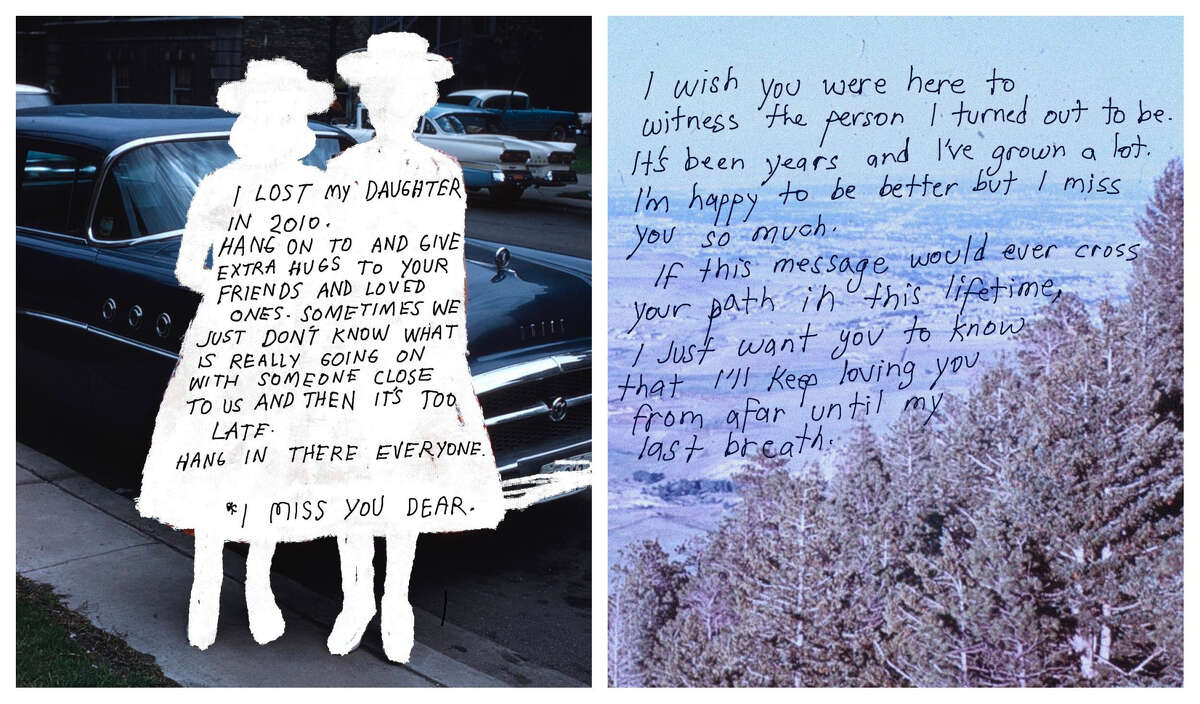 I LOST MY DAUGHTER
IN 2010.
HANG ON TO AND GIVE
EXTRA HUGS TO YOUR
FRIENDS AND LOVED
ONES. SOMETIMES WE
JUST DON'T KNOW WHAT
IS REALLY GOING ON
WITH SOMEONE CLOSE
TO US AND THEN IT'S TOO
LATE.
HANG IN THERE EVERYONE.
*I MISS YOU DEAR.
I wish you were here to
witness the person I turned out to be.
It's been years and I've grown a lot.
I'm happy to be better but I miss
you so much.
If this message would ever cross
your path in this lifetime,
I Just want you to know
that I'll keep loving you
from afar until my
last breath.